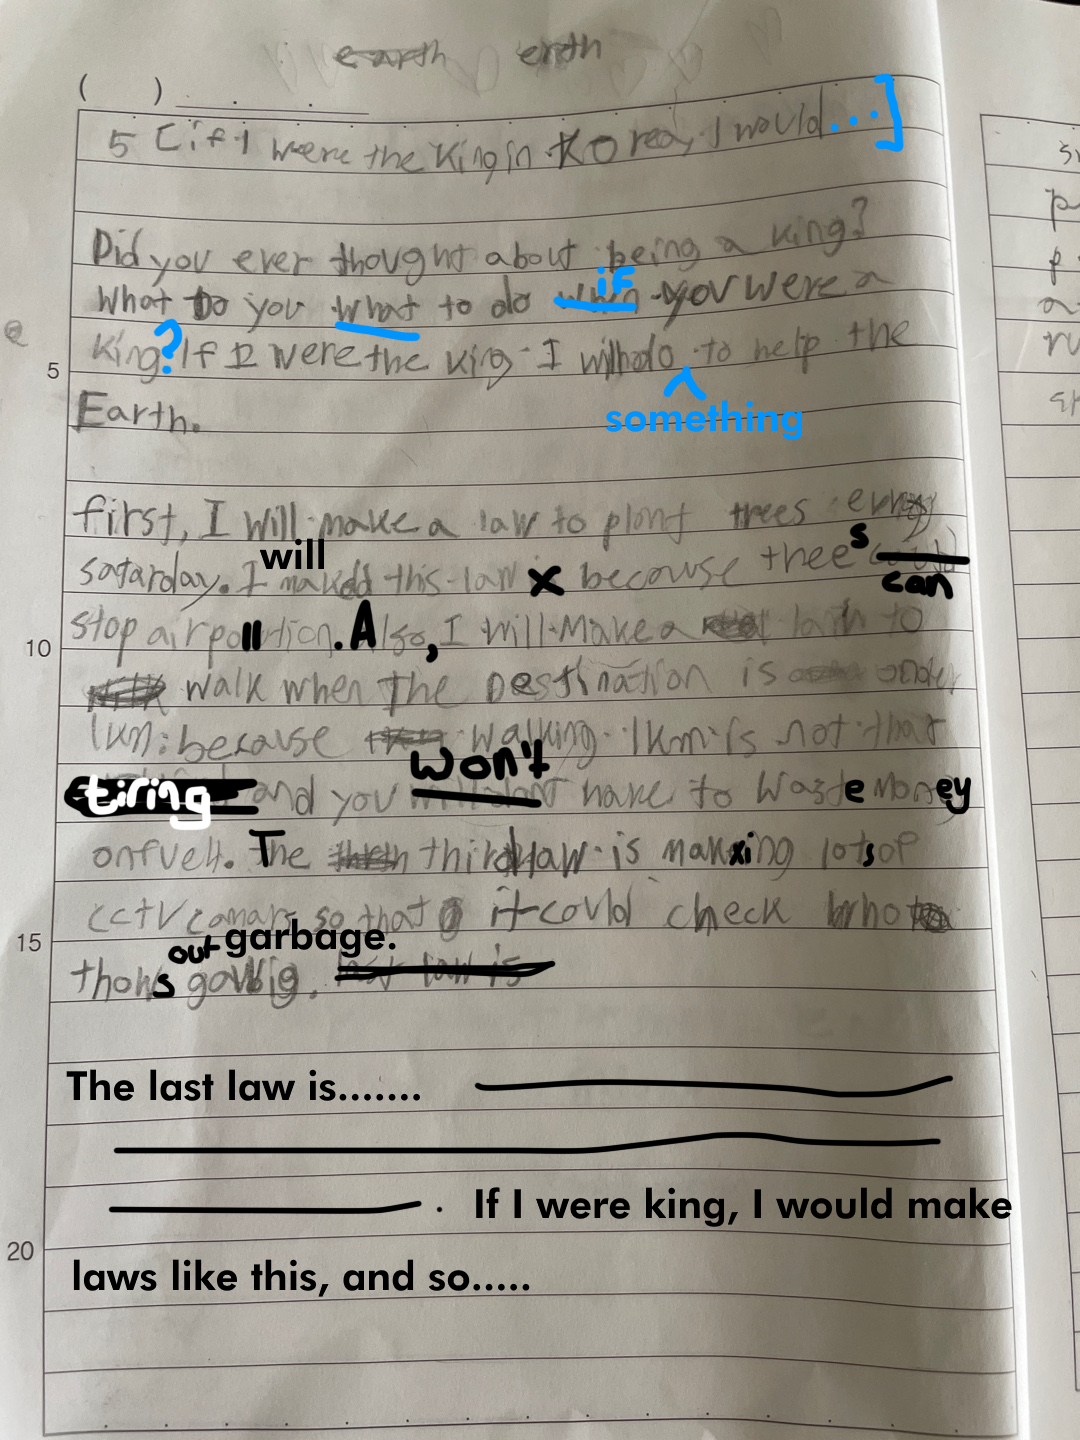 earth erth
( )
5 [if I were the King in Korea, I would...]
Did you ever thought about being a king?
if
What Do you what to do when you were a
King? If I were the king I will do to help the
5
something
Earth.
first, I will make a law to plant trees every
satarday. I will this law because thees
can
stop air pollution. Also, I will make a to
10
walk when the Destination is under
1km: because walking 1km is not that
won't
tiring and you have to waste money
on fuel. The third law is making lots of
cctv so that it could check who
15
out garbage.
thows last law is
The last law is.......
. If I were king, I would make
20
laws like this, and so.....